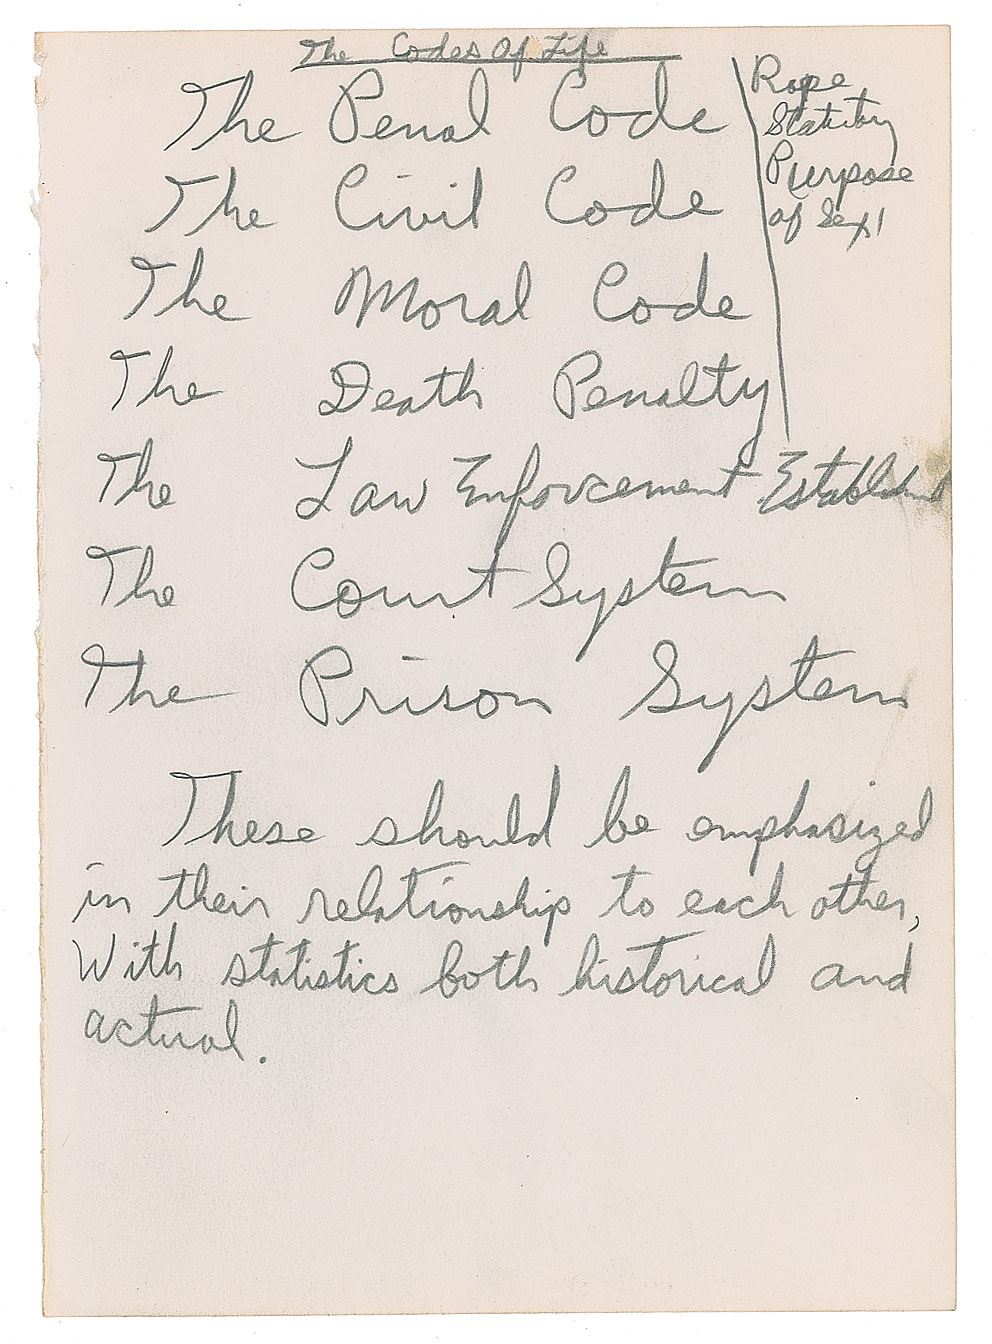 The Codes Of Life
The Penal Code
The Civil Code
The Moral Code
The Death Penalty
The Law Enforcement Establishment
The Court System
The Prison System
Rape
Statutory
Purpose
of Sex!
These should be emphasized
in their relationship to each other,
With statistics both historical and
actual.